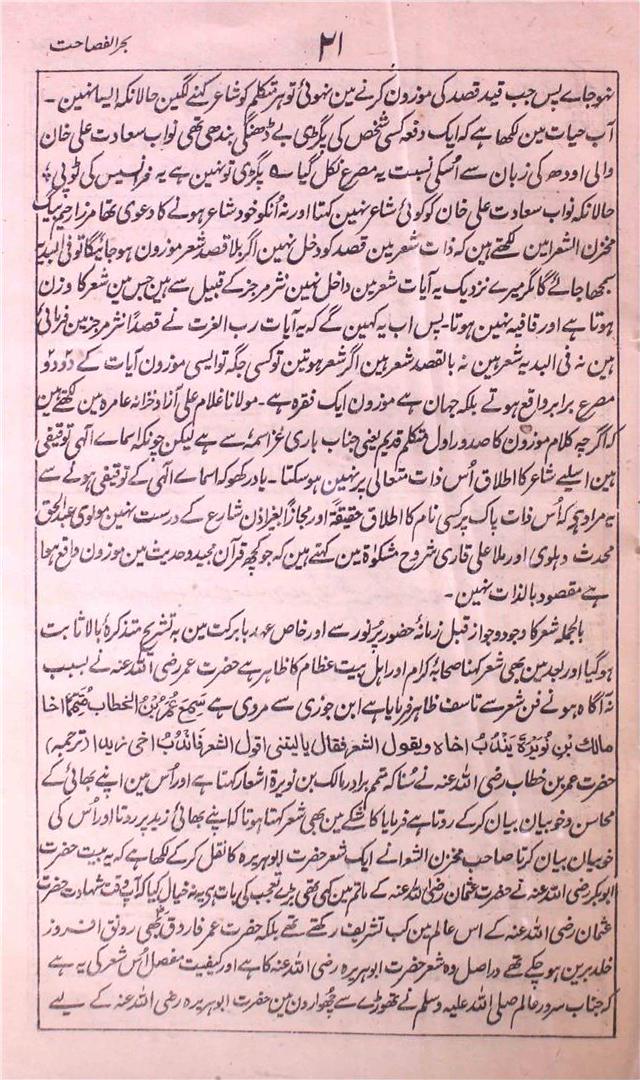 بحر الفصاحت
۲۱
نہو جاے پس جب قید قصد کی موزون کرنے مین نہوئی تو ہر متکلم کو شاعر کہنے لگین حالانکہ ایسا نہین ۔
آب حیات مین لکھا ہے کہ ایک دفعہ کسی شخص کی پگڑی بے ڈھنگی بندھی تھی نواب سعادت علی خان
والی اودھ کی زبان سے اُسکی نسبت یہ مصرع نکل گیا ؎ پگڑی تو نہین ہے یہ فراسیس کی ٹوپی ؛
حالانکہ نواب سعادت علی خان کو کوئی شاعر نہین کہتا اور نہ اُنکو خود شاعر ہونے کا دعوی تھا مرزا رحیم بیگ
مخزن الشعرا مین لکھتے ہین کہ ذات شعر مین قصد کو دخل نہین اگر بلا قصد شعر موزون ہو جائیگا تو فی البدیہ
سمجھا جائے گا مگر میرے نزدیک یہ آیات شعر مین داخل نہین نثر مرجز کے قبیل سے ہین جس مین شعر کا وزن
ہوتا ہے اور قافیہ نہین ہوتا۔ پس اب یہ کہین گے کہ یہ آیات رب العزت نے قصداً نثر مرجز مین فرمائی
ہین نہ فی البدیہ شعر ہین نہ بالقصد شعر ہین اگر شعر ہوتین تو کسی جگہ تو ایسی موزون آیات کے دو دو
مصرع برابر واقع ہوتے بلکہ جہان ہے موزون ایک فقرہ ہے ۔ مولانا غلام علی آزاد خزانہ عامرہ مین لکھتے ہین
کہ اگرچہ کلام موزون کا صدور اول متکلم قدیم یعنی جناب باری عز اسمہٗ سے ہے لیکن چونکہ اسماے الٰہی توقیفی
ہین اسلیے شاعر کا اطلاق اُس ذات متعالی پر نہین ہو سکتا ۔ یاد رکھو کہ اسماے الٰہی کے توقیفی ہونے سے
یہ مراد ہے کہ اُس ذات پاک پر کسی نام کا اطلاق حقیقۃً اور مجازاً بغیر اذن شارع کے درست نہین مولوی عبد الحق
محدث دہلوی اور ملا علی قاری شروح مشکوٰۃ مین کہتے ہین کہ جو کچھ قرآن مجید و حدیث مین موزون واقع ہوا
ہے مقصود بالذات نہین ۔
بالجملہ شعر کا وجود و جواز قبل زمانۂ حضور پُر نور سے اور خاص عہد بابرکت مین بہ تشریح متذکرۂ بالا ثابت
ہو گیا اور بعد مین بھی شعر کہنا صحابۂ کرام اور اہل بیت عظام کا ظاہر ہے حضرت عمر رضی اللہ عنہ نے بسبب
نہ آگاہ ہونے فن شعر سے تاسف ظاہر فرمایا ہے ابن جوزی سے مروی ہے سَمِعَ عُمَرُ بْنُ الْخطاب مُتَمِّمًا اخا
مالك بْنِ نُوَيْرَةَ يَنْدُبُ اخاه ويقول الشعر فقال ياليتنى اقول الشعر فاَنْدُبُ اخى زيدا (ترجمہ)
حضرت عمر بن خطاب رضی اللہ عنہ نے سُنا کہ متمم برادر مالک بن نویرۃ اشعار کہتا ہے اور اُس مین اپنے بھائی کے
محاسن و خوبیان بیان کرکے روتا ہے فرمایا کاشکے مین بھی شعر کہتا ہوتا کہ اپنے بھائی زید پر روتا اور اُس کی
خوبیان بیان کرتا صاحب مخزن الشعرا نے ایک شعر حضرت ابوہریرہ کا نقل کرکے لکھا ہے کہ یہ بیت حضرت
ابوبکر رضی اللہ عنہ نے حضرت عثمان رضی اللہ عنہ کے ماتم مین کہی تھی بڑے تعجب کی بات ہے یہ نہ خیال کیا کہ آپ وقت شہادت حضرت
عثمان رضی اللہ عنہ کے اس عالم مین کب تشریف رکھتے تھے بلکہ حضرت عمر فاروق بھی رونق افروز
خلد برین ہو چکے تھے دراصل وہ شعر حضرت ابوہریرہ رضی اللہ عنہ کا ہے اور کیفیت مفصل اُس شعر کی یہ ہے
کہ جناب سرور عالم صلی اللہ علیہ وسلم نے تھوڑے سے چھوارون مین حضرت ابوہریرہ رضی اللہ عنہ کے لیے